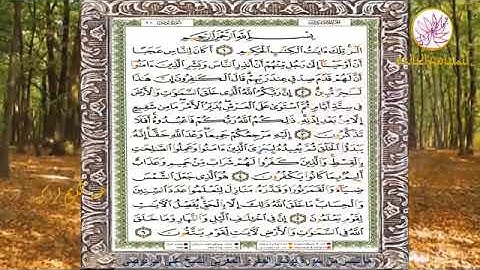 بسم الله الرحمن الرحيم
الٓر تِلْكَ ءَايَٰتُ ٱلْكِتَٰبِ ٱلْحَكِيمِ أَكَانَ لِلنَّاسِ عَجَبًا
أَنْ أَوْحَيْنَآ إِلَىٰ رَجُلٍ مِّنْهُمْ أَنْ أَنذِرِ ٱلنَّاسَ وَبَشِّرِ ٱلَّذِينَ ءَامَنُوٓا۟
أَنَّ لَهُمْ قَدَمَ صِدْقٍ عِندَ رَبِّهِمْ قَالَ ٱلْكَٰفِرُونَ إِنَّ هَٰذَا
لَسَٰحِرٌ مُّبِينٌ إِنَّ رَبَّكُمُ ٱللَّهُ ٱلَّذِى خَلَقَ ٱلسَّمَٰوَٰتِ وَٱلْأَرْضَ
فِى سِتَّةِ أَيَّامٍ ثُمَّ ٱسْتَوَىٰ عَلَى ٱلْعَرْشِ يُدَبِّرُ ٱلْأَمْرَ مَا مِن شَفِيعٍ
إِلَّا مِنۢ بَعْدِ إِذْنِهِۦ ذَٰلِكُمُ ٱللَّهُ رَبُّكُمْ فَٱعْبُدُوهُ أَفَلَا
تَذَكَّرُونَ إِلَيْهِ مَرْجِعُكُمْ جَمِيعًا وَعْدَ ٱللَّهِ حَقًّا إِنَّهُۥ
يَبْدَؤُا۟ ٱلْخَلْقَ ثُمَّ يُعِيدُهُۥ لِيَجْزِىَ ٱلَّذِينَ ءَامَنُوا۟ وَعَمِلُوا۟ ٱلصَّٰلِحَٰتِ
بِٱلْقِسْطِ وَٱلَّذِينَ كَفَرُوا۟ لَهُمْ شَرَابٌ مِّنْ حَمِيمٍ وَعَذَابٌ
أَلِيمٌۢ بِمَا كَانُوا۟ يَكْفُرُونَ هُوَ ٱلَّذِى جَعَلَ ٱلشَّمْسَ
ضِيَآءً وَٱلْقَمَرَ نُورًا وَقَدَّرَهُۥ مَنَازِلَ لِتَعْلَمُوا۟ عَدَدَ ٱلسِّنِينَ
وَٱلْحِسَابَ مَا خَلَقَ ٱللَّهُ ذَٰلِكَ إِلَّا بِٱلْحَقِّ يُفَصِّلُ ٱلْءَايَٰتِ
لِقَوْمٍ يَعْلَمُونَ إِنَّ فِى ٱخْتِلَٰفِ ٱلَّيْلِ وَٱلنَّهَارِ وَمَا خَلَقَ
ٱللَّهُ فِى ٱلسَّمَٰوَٰتِ وَٱلْأَرْضِ لَءَايَٰتٍ لِّقَوْمٍ يَتَّقُونَ